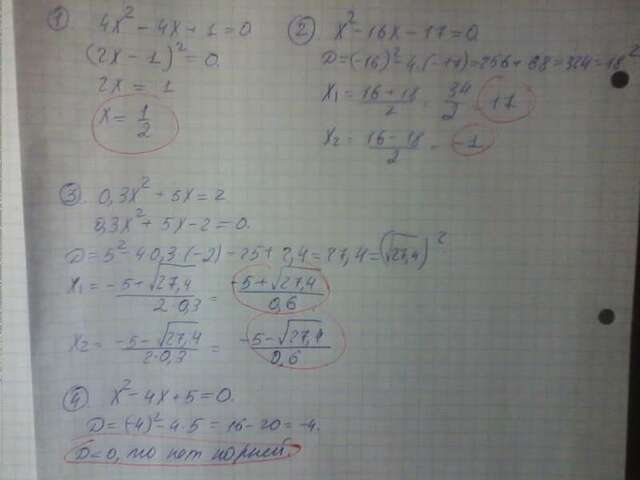 ① 4x² - 4x + 1 = 0
(2x - 1)² = 0
2x = 1
x = 1/2
② x² - 16x - 17 = 0
D = (-16)² - 4·(-17) = 256 + 68 = 324 = 18²
x₁ = (16 + 18)/2 = 34/2 = 17
x₂ = (16 - 18)/2 = -1
③ 0,3x² + 5x = 2
0,3x² + 5x - 2 = 0.
D = 5² - 4·0,3·(-2) = 25 + 2,4 = 27,4 = (√27,4)²
x₁ = (-5 + √27,4)/(2·0,3) = (-5 + √27,4)/0,6
x₂ = (-5 - √27,4)/(2·0,3) = (-5 - √27,4)/0,6
④ x² - 4x + 5 = 0.
D = (-4)² - 4·5 = 16 - 20 = -4.
D<0, то нет корней.